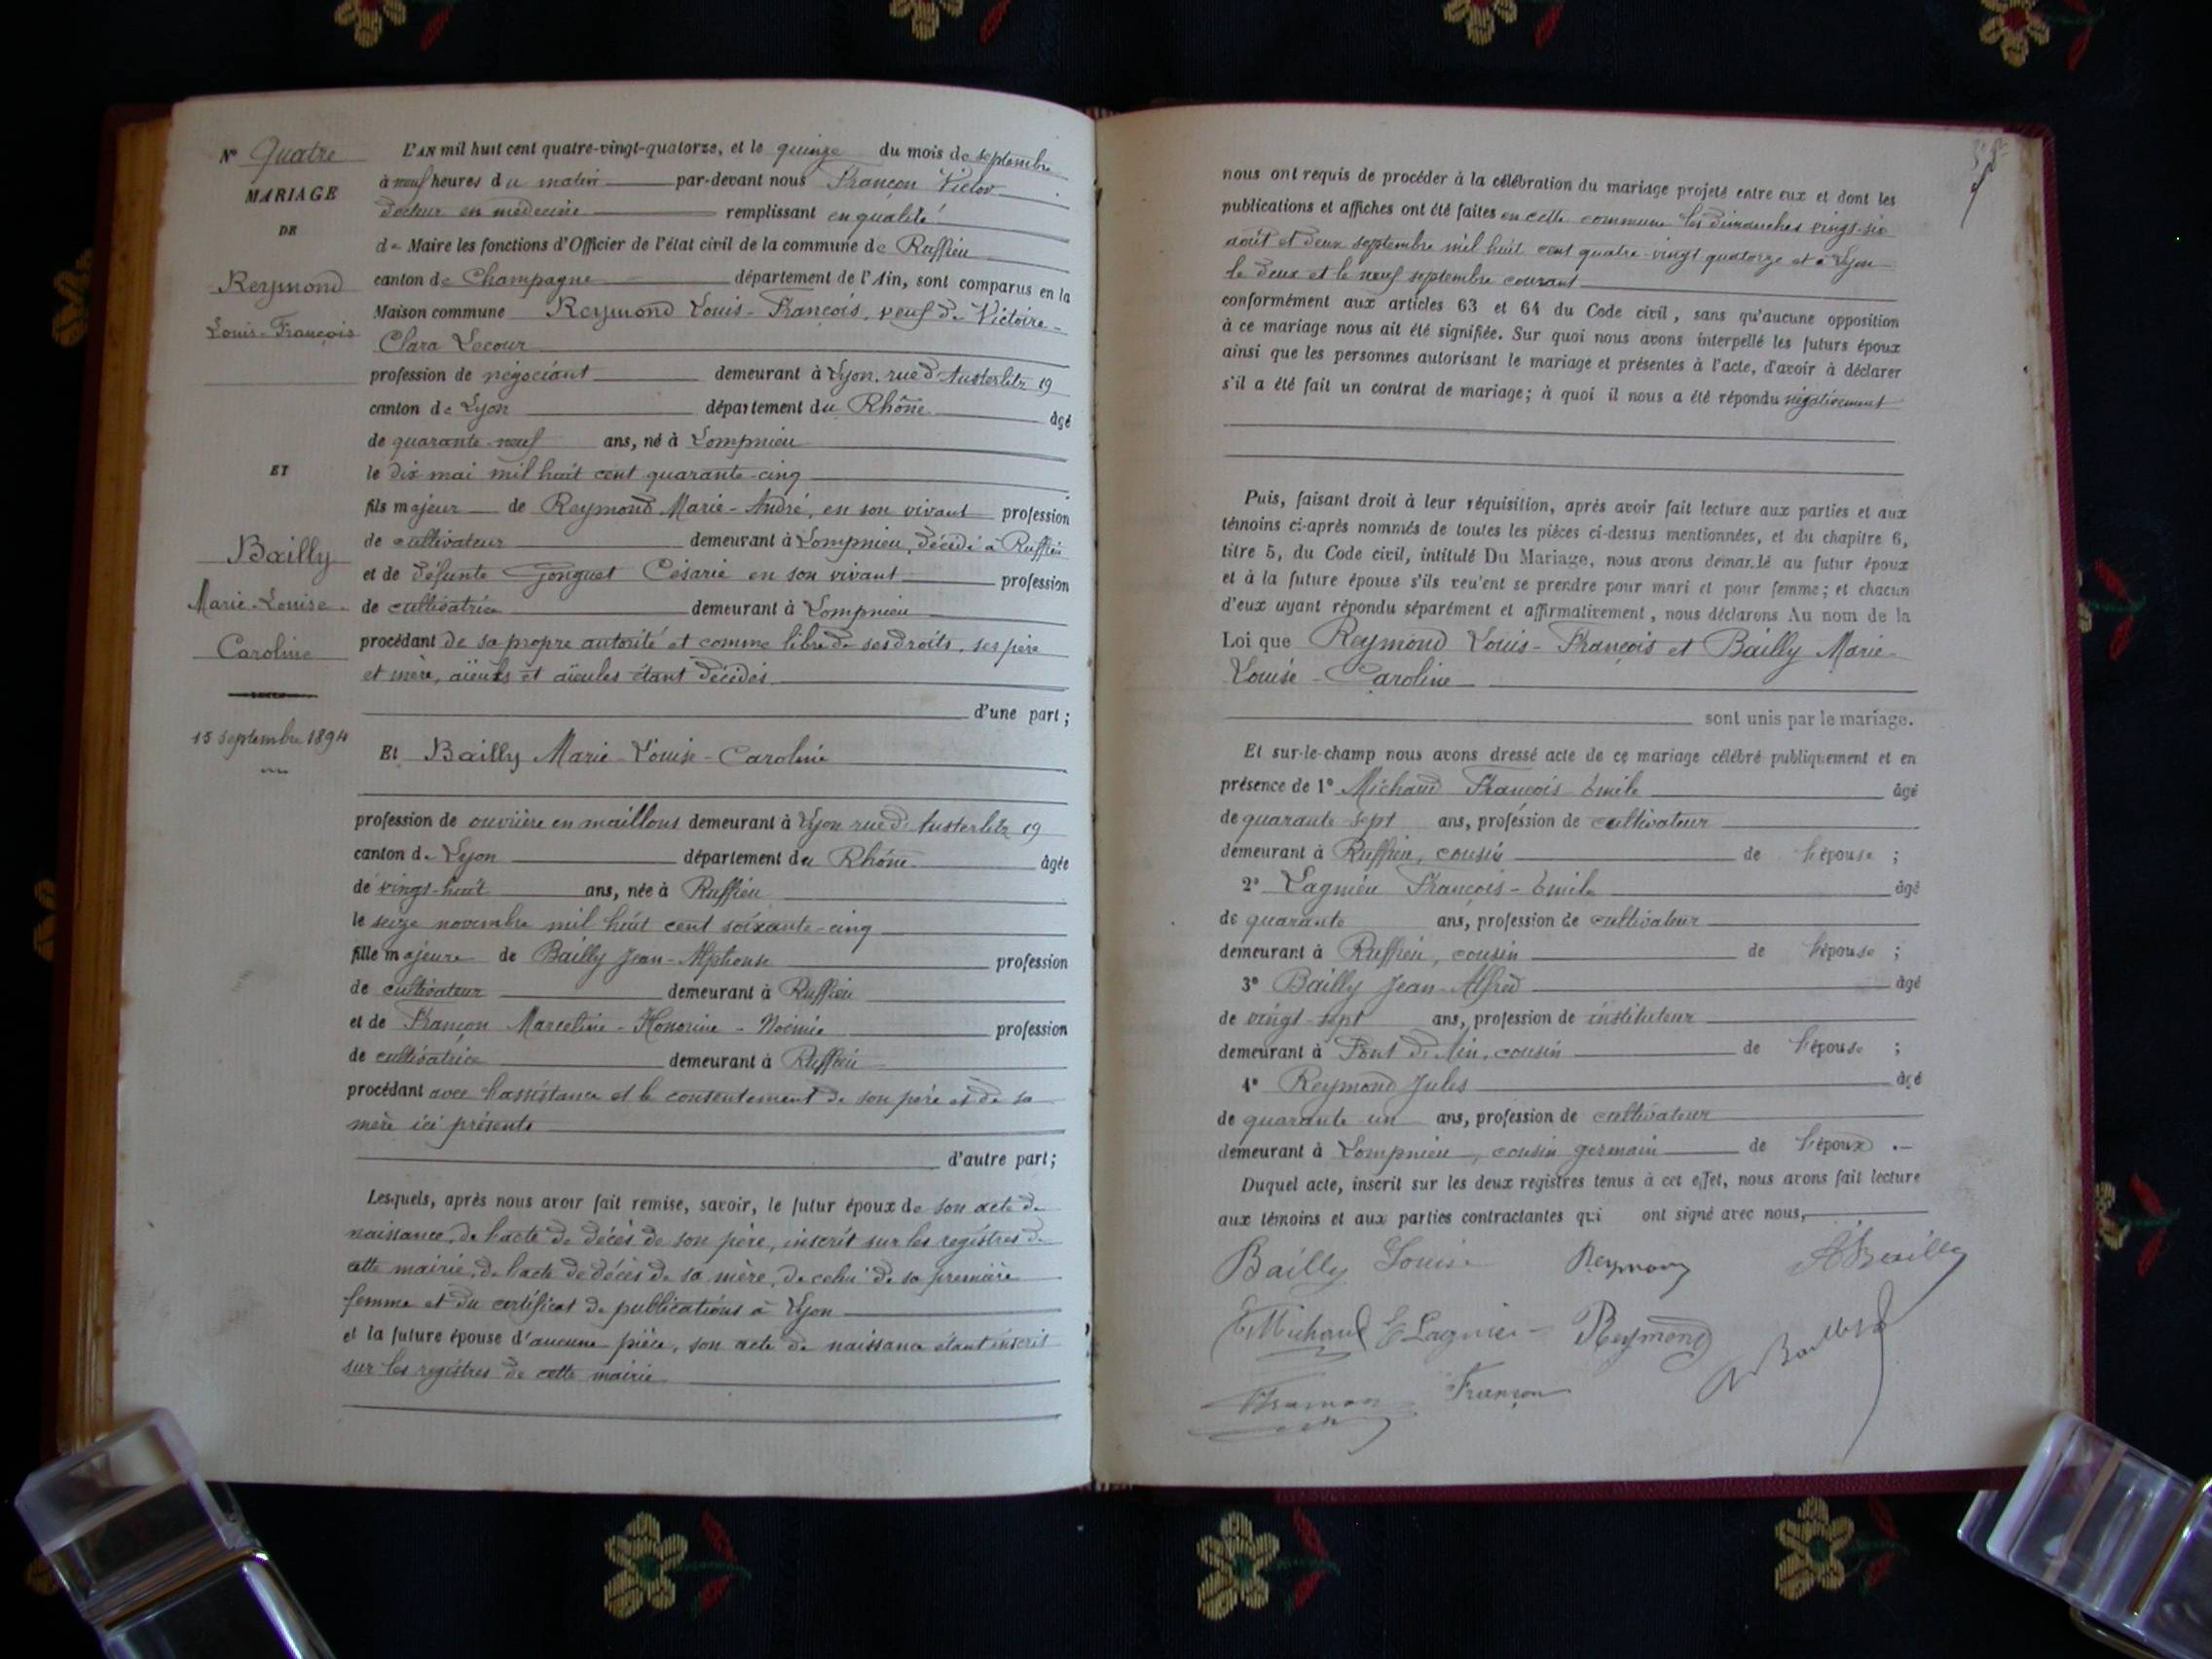 N° Quatre
MARIAGE
DE
Reymond
Louis-François
ET
Bailly
Marie-Louise
Caroline
15 septembre 1894
L'AN mil huit cent quatre-vingt-quatorze, et le quinze du mois de septembre
à neuf heures du matin par-devant nous Françon Victor
docteur en médecine remplissant en qualité
de Maire les fonctions d'Officier de l'état civil de la commune de Ruffieu
canton de Champagne département de l'Ain, sont comparus en la
Maison commune Reymond Louis-François, veuf de Victoire-
Clara Lecour
profession de négociant demeurant à Lyon, rue d'Austerlitz 19
canton de Lyon département du Rhône âgé
de quarante-neuf ans, né à Lompnieu
le dix mai mil huit cent quarante-cinq
fils majeur de Reymond Marie-André, en son vivant profession
de cultivateur demeurant à Lompnieu, décédé à Ruffieu
et de défunte Gonguet Césarie en son vivant profession
de cultivatrice demeurant à Lompnieu
procédant de sa propre autorité et comme libre de ses droits, ses père
et mère, aïeuls et aïeules étant décédés
d'une part;
Et Bailly Marie-Louise-Caroline
profession de ouvrière en maillons demeurant à Lyon rue d'Austerlitz 19
canton de Lyon département du Rhône âgée
de vingt-huit ans, née à Ruffieu
le seize novembre mil huit cent soixante-cinq
fille majeure de Bailly Jean-Alphonse profession
de cultivateur demeurant à Ruffieu
et de Françon Marceline-Honorine-Noémie profession
de cultivatrice demeurant à Ruffieu
procédant avec l'assistance et le consentement de son père et de sa
mère ici présents
d'autre part;
Lesquels, après nous avoir fait remise, savoir, le futur époux de son acte de
naissance, de l'acte de décès de son père, inscrit sur les registres de
cette mairie, de l'acte de décès de sa mère, de celui de sa première
femme et du certificat de publications à Lyon
et la future épouse d'aucune pièce, son acte de naissance étant inscrit
sur les registres de cette mairie
nous ont requis de procéder à la célébration du mariage projeté entre eux et dont les
publications et affiches ont été faites en cette commune les dimanches vingt-six
août et deux septembre mil huit cent quatre-vingt quatorze et à Lyon
le deux et le neuf septembre courant
conformément aux articles 63 et 64 du Code civil, sans qu'aucune opposition
à ce mariage nous ait été signifiée. Sur quoi nous avons interpellé les futurs époux
ainsi que les personnes autorisant le mariage et présentes à l'acte, d'avoir à déclarer
s'il a été fait un contrat de mariage; à quoi il nous a été répondu négativement
Puis, faisant droit à leur réquisition, après avoir fait lecture aux parties et aux
témoins ci-après nommés de toutes les pièces ci-dessus mentionnées, et du chapitre 6,
titre 5, du Code civil, intitulé Du Mariage, nous avons demandé au futur époux
et à la future épouse s'ils veulent se prendre pour mari et pour femme; et chacun
d'eux ayant répondu séparément et affirmativement, nous déclarons Au nom de la
Loi que Reymond Louis-François et Bailly Marie-
Louise-Caroline
sont unis par le mariage.
Et sur-le-champ nous avons dressé acte de ce mariage célébré publiquement et en
présence de 1° Michaud François Emile âgé
de quarante-sept ans, profession de cultivateur
demeurant à Ruffieu, cousin de l'épouse;
2° Lagnieu François-Emile âgé
de quarante ans, profession de cultivateur
demeurant à Ruffieu, cousin de l'épouse;
3° Bailly Jean-Alfred âgé
de vingt-sept ans, profession de instituteur
demeurant à Pont d'Ain, cousin de l'épouse;
4° Reymond Jules âgé
de quarante un ans, profession de cultivateur
demeurant à Lompnieu, cousin germain de l'époux.
Duquel acte, inscrit sur les deux registres tenus à cet effet, nous avons fait lecture
aux témoins et aux parties contractantes qui ont signé avec nous,
Bailly Louise Reymond A Bailly
E Michaud E Lagnieu Reymond
Françon Françon